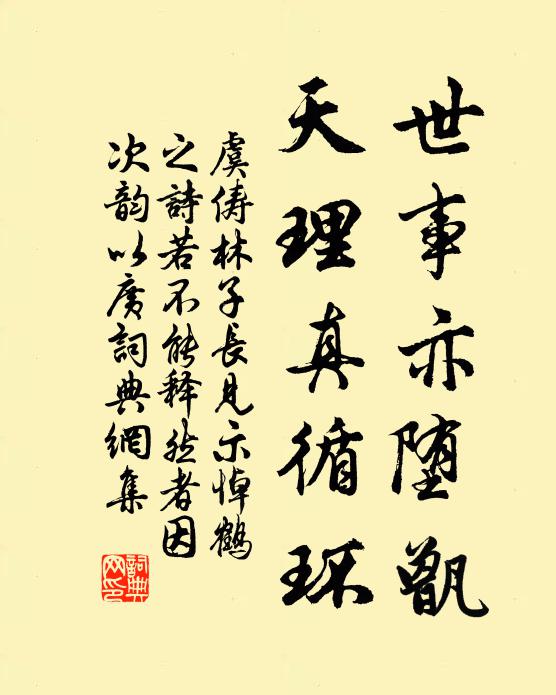 世事亦堕甑
天理真循环
虞俦林子長見示悼鶴
之詩若不能释然者因
次韵以广詞典網集
詞典
网印